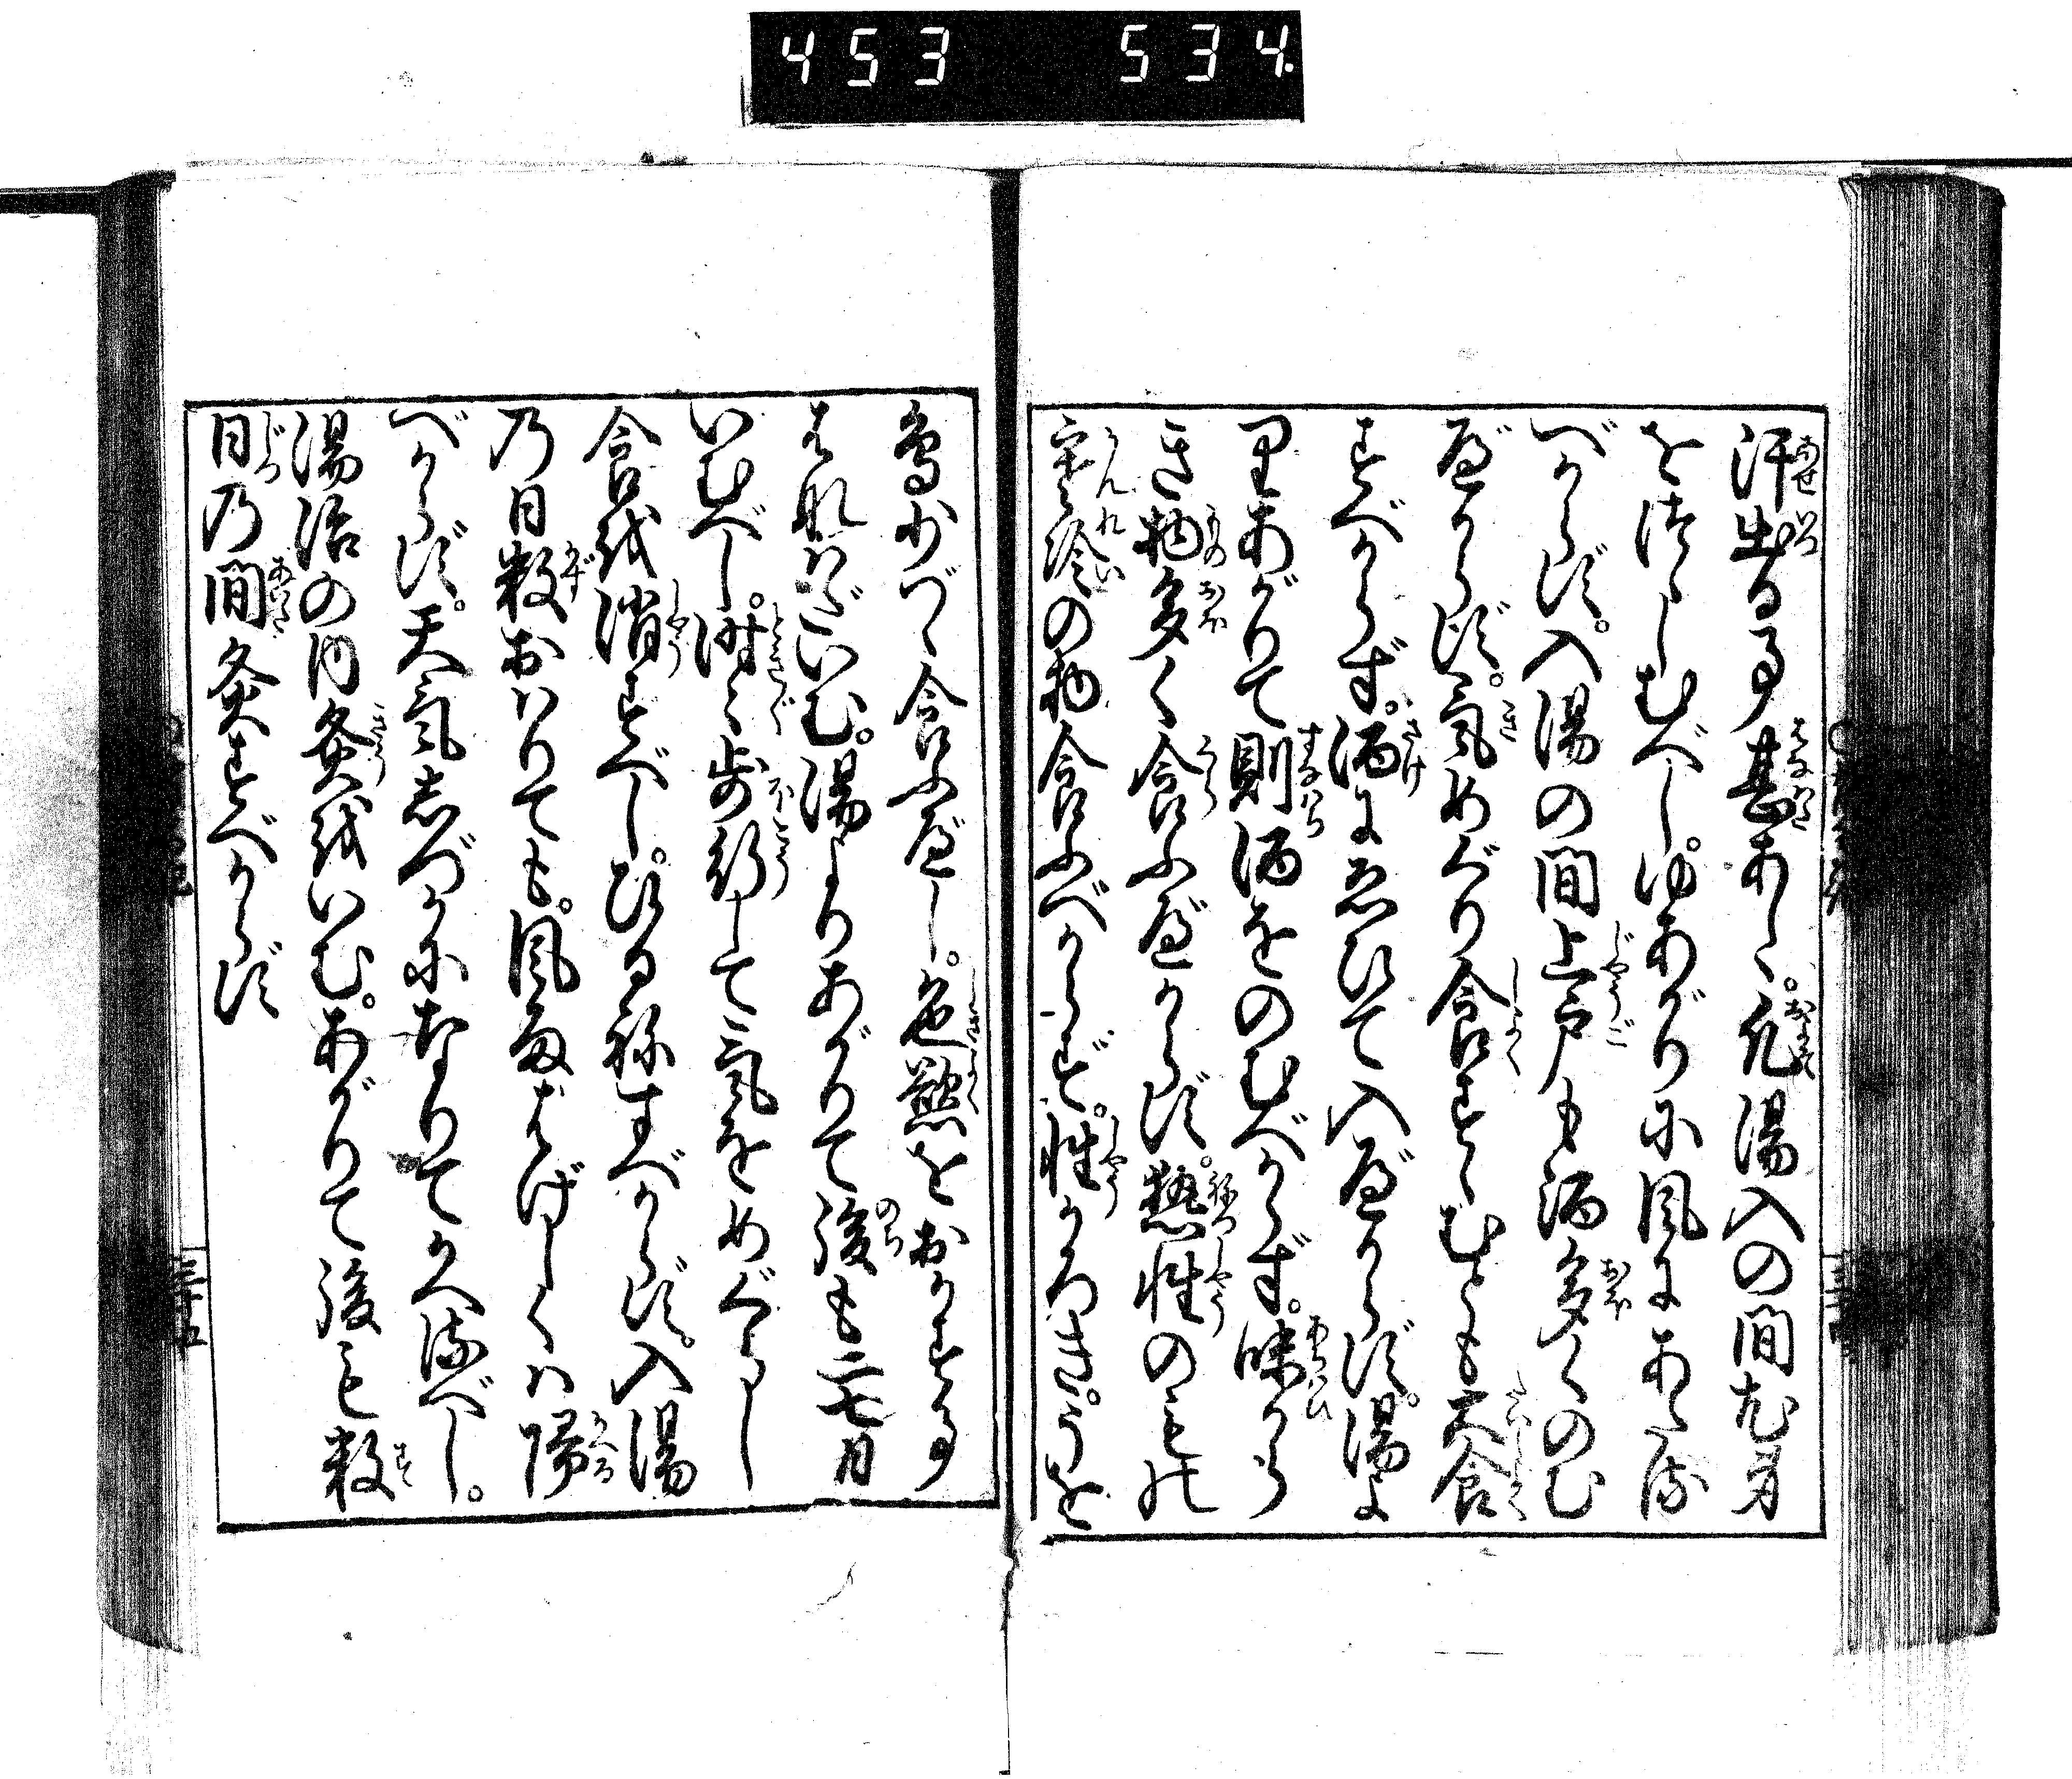 453 534.
汗出る事甚あし。凡湯入の間尤身
をつゝしむべし。ゆあがりに風にあたる
べからず。入湯の間上戸も酒多くのむ
べからず。気めぐり食すゝむとも大食
すべからず。酒に酔ひて入べからず。湯よ
りあがりて則酒をのむべからず。味から
き物多く食ふべからず。熱性のもの
寒冷の物食ふべからず。性かろき。うを
鳥少づゝ食ふべし。色慾をおかす事
はなはだいむ。湯よりあがりて後も二七日
いむべし。時々歩行して気をめぐらし
食を消すべし。ひるねすべからず。入湯
の日数おはりても。風雨はげしくは帰
べからず。天気しづかになりてかへるべし。
湯治の内灸をいむ。あがりて後も数
日の間灸すべからず
三十五